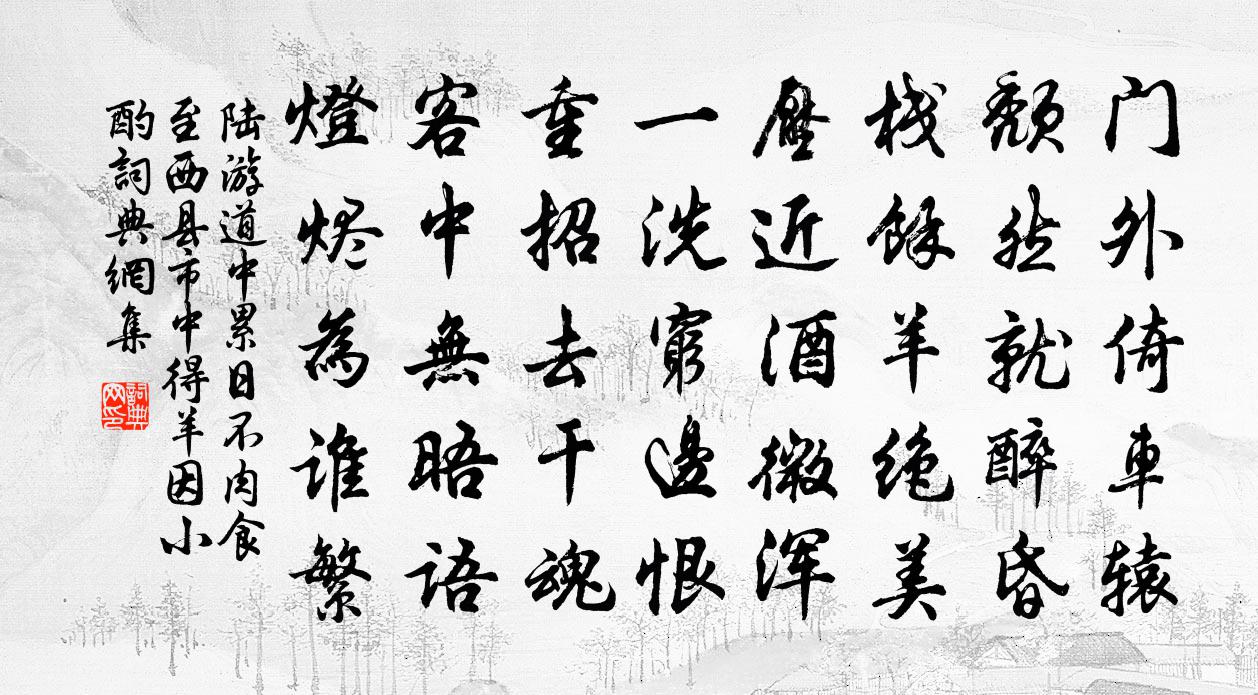 门外倚車辕
頹然就醉昏
栈餘羊绝美
壓近酒微浑
一洗窮邊恨
重招去干魂
客中無晤語
燈烬為谁繁
陆游道中累日不肉食
至西县市中得羊因小
酌詞典網集
詞典网印